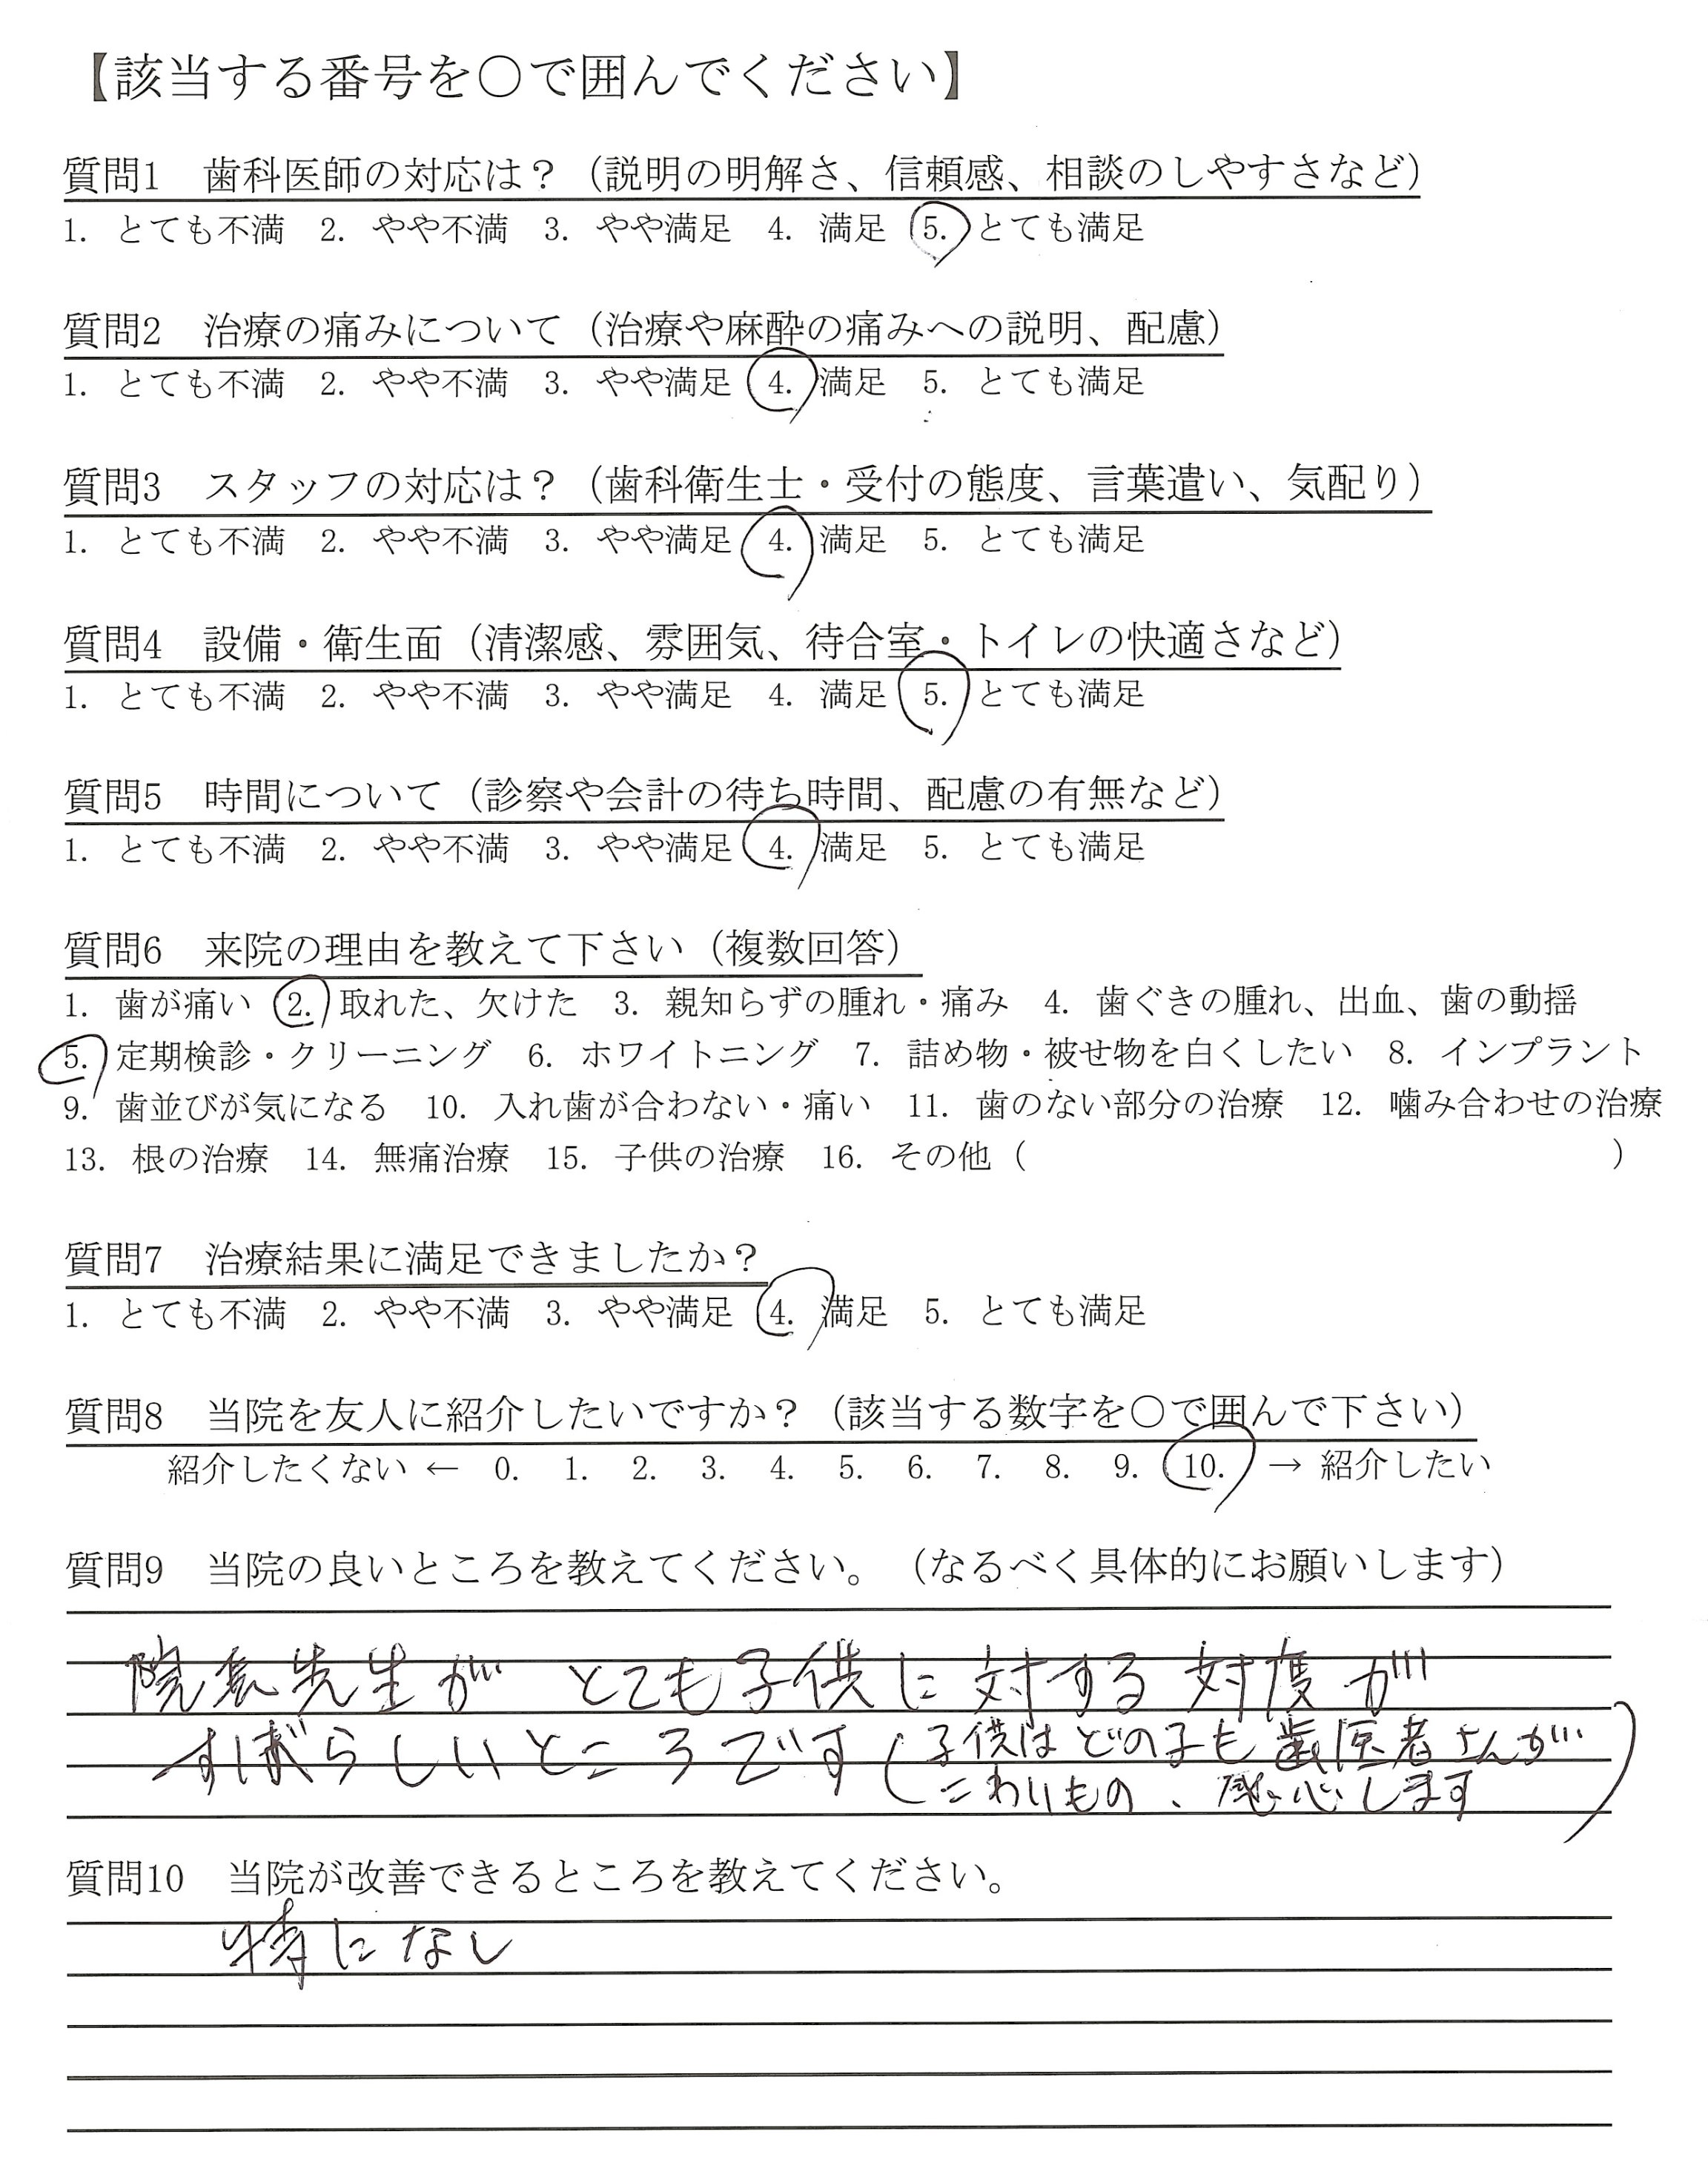 【該当する番号を○で囲んでください】
質問1　歯科医師の対応は？（説明の明解さ、信頼感、相談のしやすさなど）
1. とても不満　2. やや不満　3. やや満足　4. 満足　5. とても満足
質問2　治療の痛みについて（治療や麻酔の痛みへの説明、配慮）
1. とても不満　2. やや不満　3. やや満足　4. 満足　5. とても満足
質問3　スタッフの対応は？（歯科衛生士・受付の態度、言葉遣い、気配り）
1. とても不満　2. やや不満　3. やや満足　4. 満足　5. とても満足
質問4　設備・衛生面（清潔感、雰囲気、待合室・トイレの快適さなど）
1. とても不満　2. やや不満　3. やや満足　4. 満足　5. とても満足
質問5　時間について（診察や会計の待ち時間、配慮の有無など）
1. とても不満　2. やや不満　3. やや満足　4. 満足　5. とても満足
質問6　来院の理由を教えて下さい（複数回答）
1. 歯が痛い　2. 取れた、欠けた　3. 親知らずの腫れ・痛み　4. 歯ぐきの腫れ、出血、歯の動揺
5. 定期検診・クリーニング　6. ホワイトニング　7. 詰め物・被せ物を白くしたい　8. インプラント
9. 歯並びが気になる　10. 入れ歯が合わない・痛い　11. 歯のない部分の治療　12. 噛み合わせの治療
13. 根の治療　14. 無痛治療　15. 子供の治療　16. その他（　　　　　　　　）
質問7　治療結果に満足できましたか？
1. とても不満　2. やや不満　3. やや満足　4. 満足　5. とても満足
質問8　当院を友人に紹介したいですか？（該当する数字を○で囲んで下さい）
紹介したくない ← 0. 1. 2. 3. 4. 5. 6. 7. 8. 9. 10. → 紹介したい
質問9　当院の良いところを教えてください。（なるべく具体的にお願いします）
院長先生が とても子供に対する対度が
すばらしいところです（子供はどの子も歯医者さんが
こわいもの、感心します）
質問10　当院が改善できるところを教えてください。
特になし